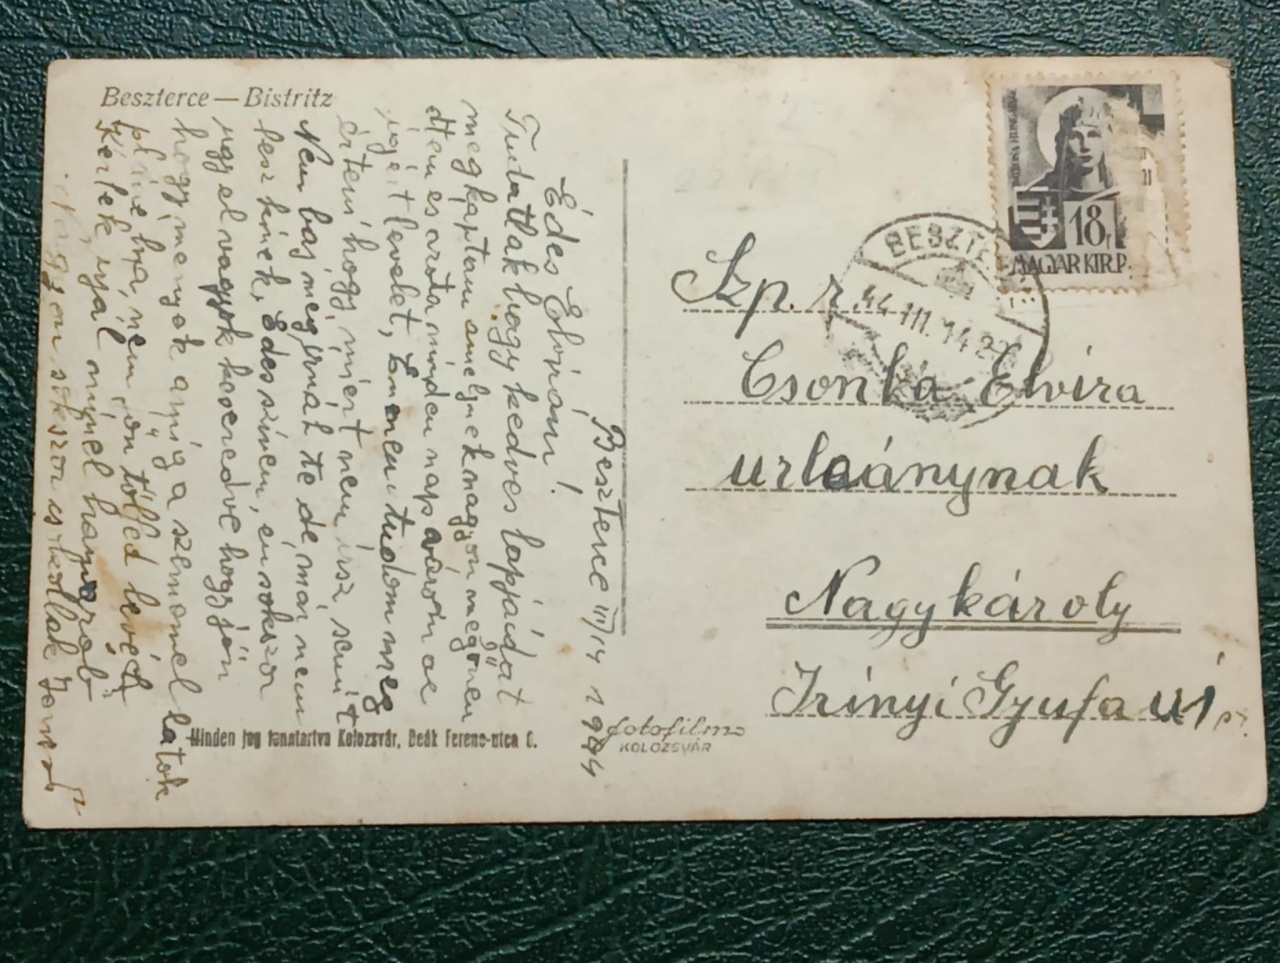 Beszterce — Bistritz
Beszterce III/14 1944
Édes Elvirám!
Tudatlak hogy kedves lapjaidat
megkaptam amelynek nagyon megörü
ltem és azóta minden nap várom az
igéit levelet, Én nem tudom meg
érteni hogy miért nem irsz, semit
Nem baj még irnál te de már nem
lesz kinek, Édes szivem, én sokszor
ugy el vagyok keseredve hogy jön
hogy menyek amig a szememel látok
nem jön tölled levél
Kérlek irjál minél hamarább
Nagyon sokszor csokollak
Minden jog fenntartva Kolozsvár, Deák Ferenc-utca 6.
fotofilm
KOLOZSVÁR
MAGYAR KIR. P.
18f
BESZTE
44 III. 14 2
Szp. r.
Csonka Elvira
urleánynak
Nagykároly
Irinyi Gyufa